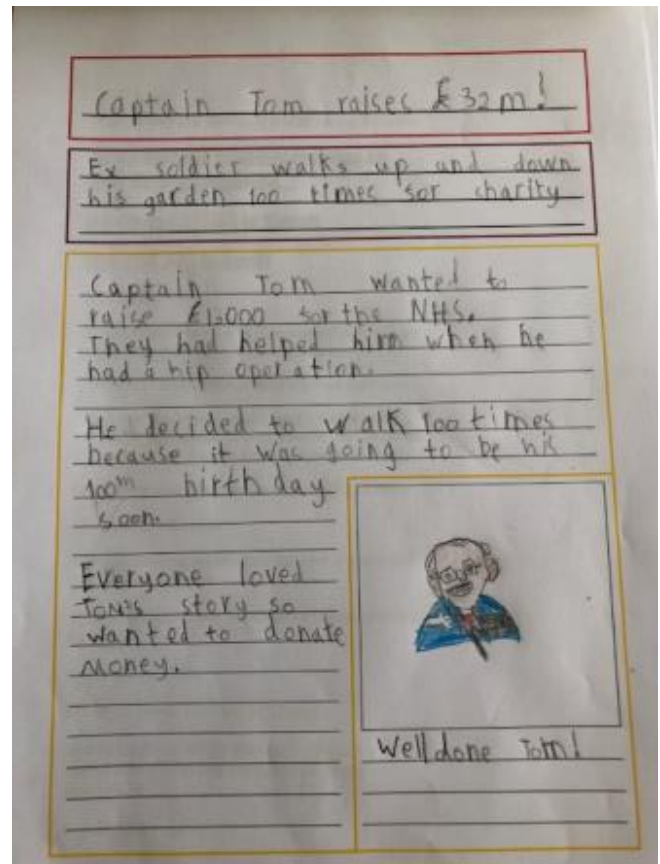 Captain Tom raises £32m!
Ex soldier walks up and down
his garden 100 times sor charity
Captain Tom wanted to
raise £1,000 sor the NHS.
They had helped him when he
had a hip operation.
He decided to walk 100 times
because it was going to be his
100th birthday
soon.
Everyone loved
Tom's story so
wanted to donate
money.
Well done Tom!